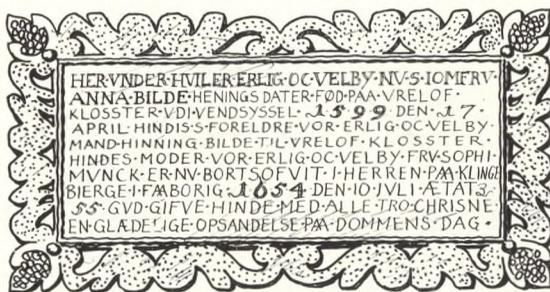 HER·VNDER·HVILER·ERLIG·OC·VELBY·NV·S·IOMFRV·
ANNA·BILDE·HENINGS DATER·FØD·PAA·VRELOF·
KLOSSTER·VDI·VENDSYSSEL·1599·DEN·17·
APRIL·HINDIS·S·FORELDRE·VOR·ERLIG·OC·VELBY·
MAND·HINNING·BILDE·TIL·VRELOF·KLOSSTER·
HINDES·MODER·VOR·ERLIG·OC·VELBY·FRV·SOPHI·
MVNCK·ER·NV·BORTSOFVIT·I·HERREN·PAA·KLINGE
BJERGE·I·FAABORIG·1654·DEN·10·JVLI·ÆTAT
55·GVD·GIFVE·HINDE·MED·ALLE·TRO·CHRISNE·
EN·GLÆDELIGE·OPSANDELSE·PAA·DOMMENS·DAG·